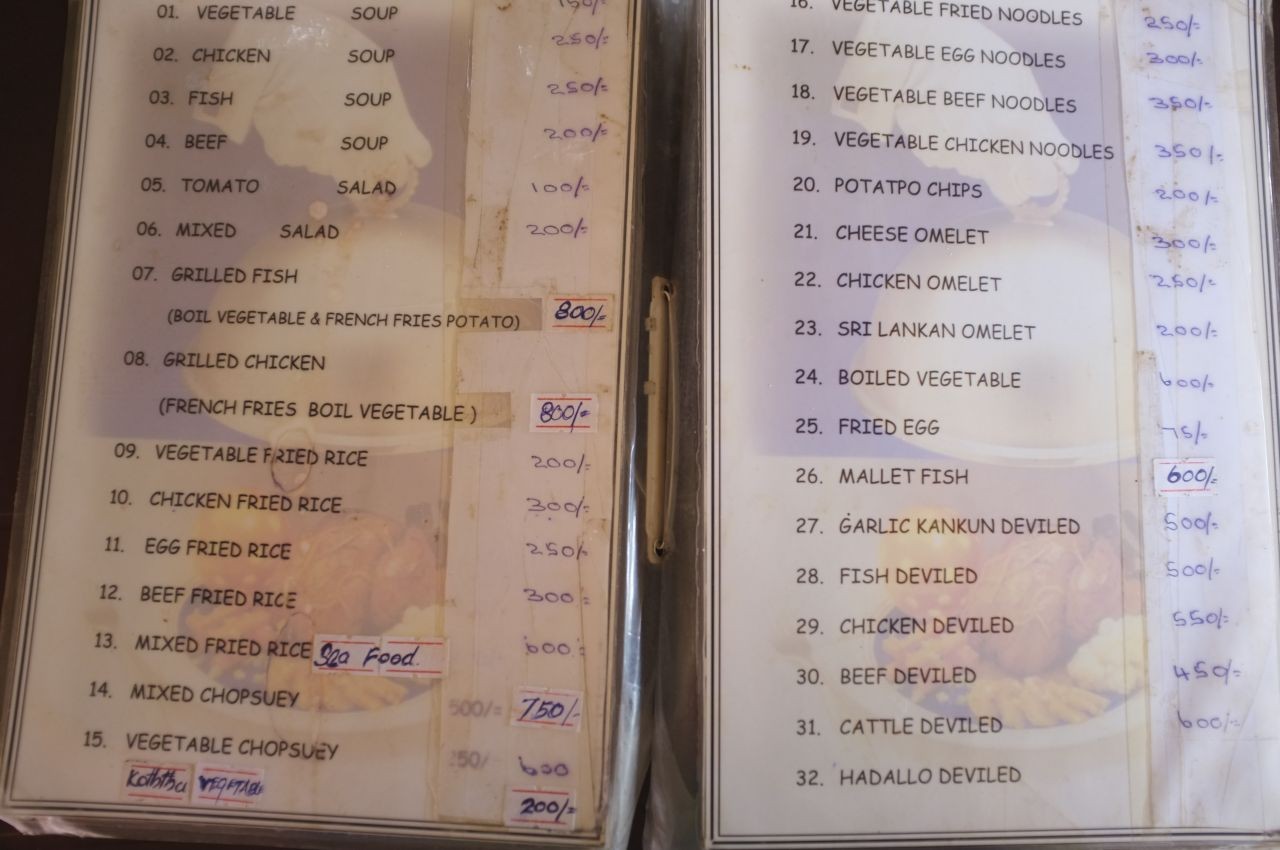 01. VEGETABLE SOUP 150/=
02. CHICKEN SOUP 250/=
03. FISH SOUP 250/=
04. BEEF SOUP 200/=
05. TOMATO SALAD 100/=
06. MIXED SALAD 200/=
07. GRILLED FISH
(BOIL VEGETABLE & FRENCH FRIES POTATO) 800/=
08. GRILLED CHICKEN
(FRENCH FRIES BOIL VEGETABLE ) 800/=
09. VEGETABLE FRIED RICE 200/=
10. CHICKEN FRIED RICE 300/=
11. EGG FRIED RICE 250/=
12. BEEF FRIED RICE 300
13. MIXED FRIED RICE Sea Food. 600
14. MIXED CHOPSUEY 500/= 750/-
15. VEGETABLE CHOPSUEY 600
VEGETABLE 200/=
16. VEGETABLE FRIED NOODLES 250/=
17. VEGETABLE EGG NOODLES 300/=
18. VEGETABLE BEEF NOODLES 350/=
19. VEGETABLE CHICKEN NOODLES 350/=
20. POTATPO CHIPS 200/=
21. CHEESE OMELET 300/=
22. CHICKEN OMELET 250/=
23. SRI LANKAN OMELET 200/=
24. BOILED VEGETABLE 600/=
25. FRIED EGG 75/=
26. MALLET FISH 600/=
27. GARLIC KANKUN DEVILED 500/=
28. FISH DEVILED 500/=
29. CHICKEN DEVILED 550/=
30. BEEF DEVILED 450/=
31. CATTLE DEVILED 600/=
32. HADALLO DEVILED